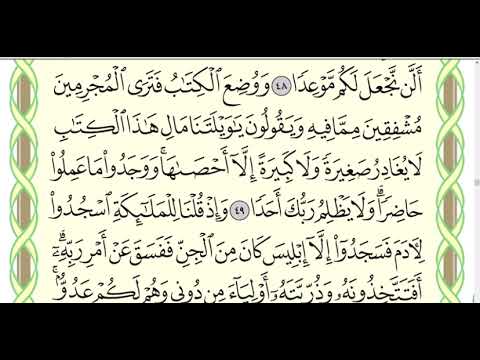 أَلَّن نَّجْعَلَ لَكُم مَّوْعِدًا ٤٨ وَوُضِعَ ٱلْكِتَٰبُ فَتَرَى ٱلْمُجْرِمِينَ
مُشْفِقِينَ مِمَّا فِيهِ وَيَقُولُونَ يَٰوَيْلَتَنَا مَالِ هَٰذَا ٱلْكِتَٰبِ
لَا يُغَادِرُ صَغِيرَةً وَلَا كَبِيرَةً إِلَّآ أَحْصَىٰهَا ۚ وَوَجَدُوا۟ مَا عَمِلُوا۟
حَاضِرًا ۗ وَلَا يَظْلِمُ رَبُّكَ أَحَدًا ٤٩ وَإِذْ قُلْنَا لِلْمَلَٰٓئِكَةِ ٱسْجُدُوا۟
لِءَادَمَ فَسَجَدُوٓا۟ إِلَّآ إِبْلِيسَ كَانَ مِنَ ٱلْجِنِّ فَفَسَقَ عَنْ أَمْرِ رَبِّهِۦٓ ۗ
أَفَتَتَّخِذُونَهُۥ وَذُرِّيَّتَهُۥٓ أَوْلِيَآءَ مِن دُونِى وَهُمْ لَكُمْ عَدُوٌّۢ ۚ